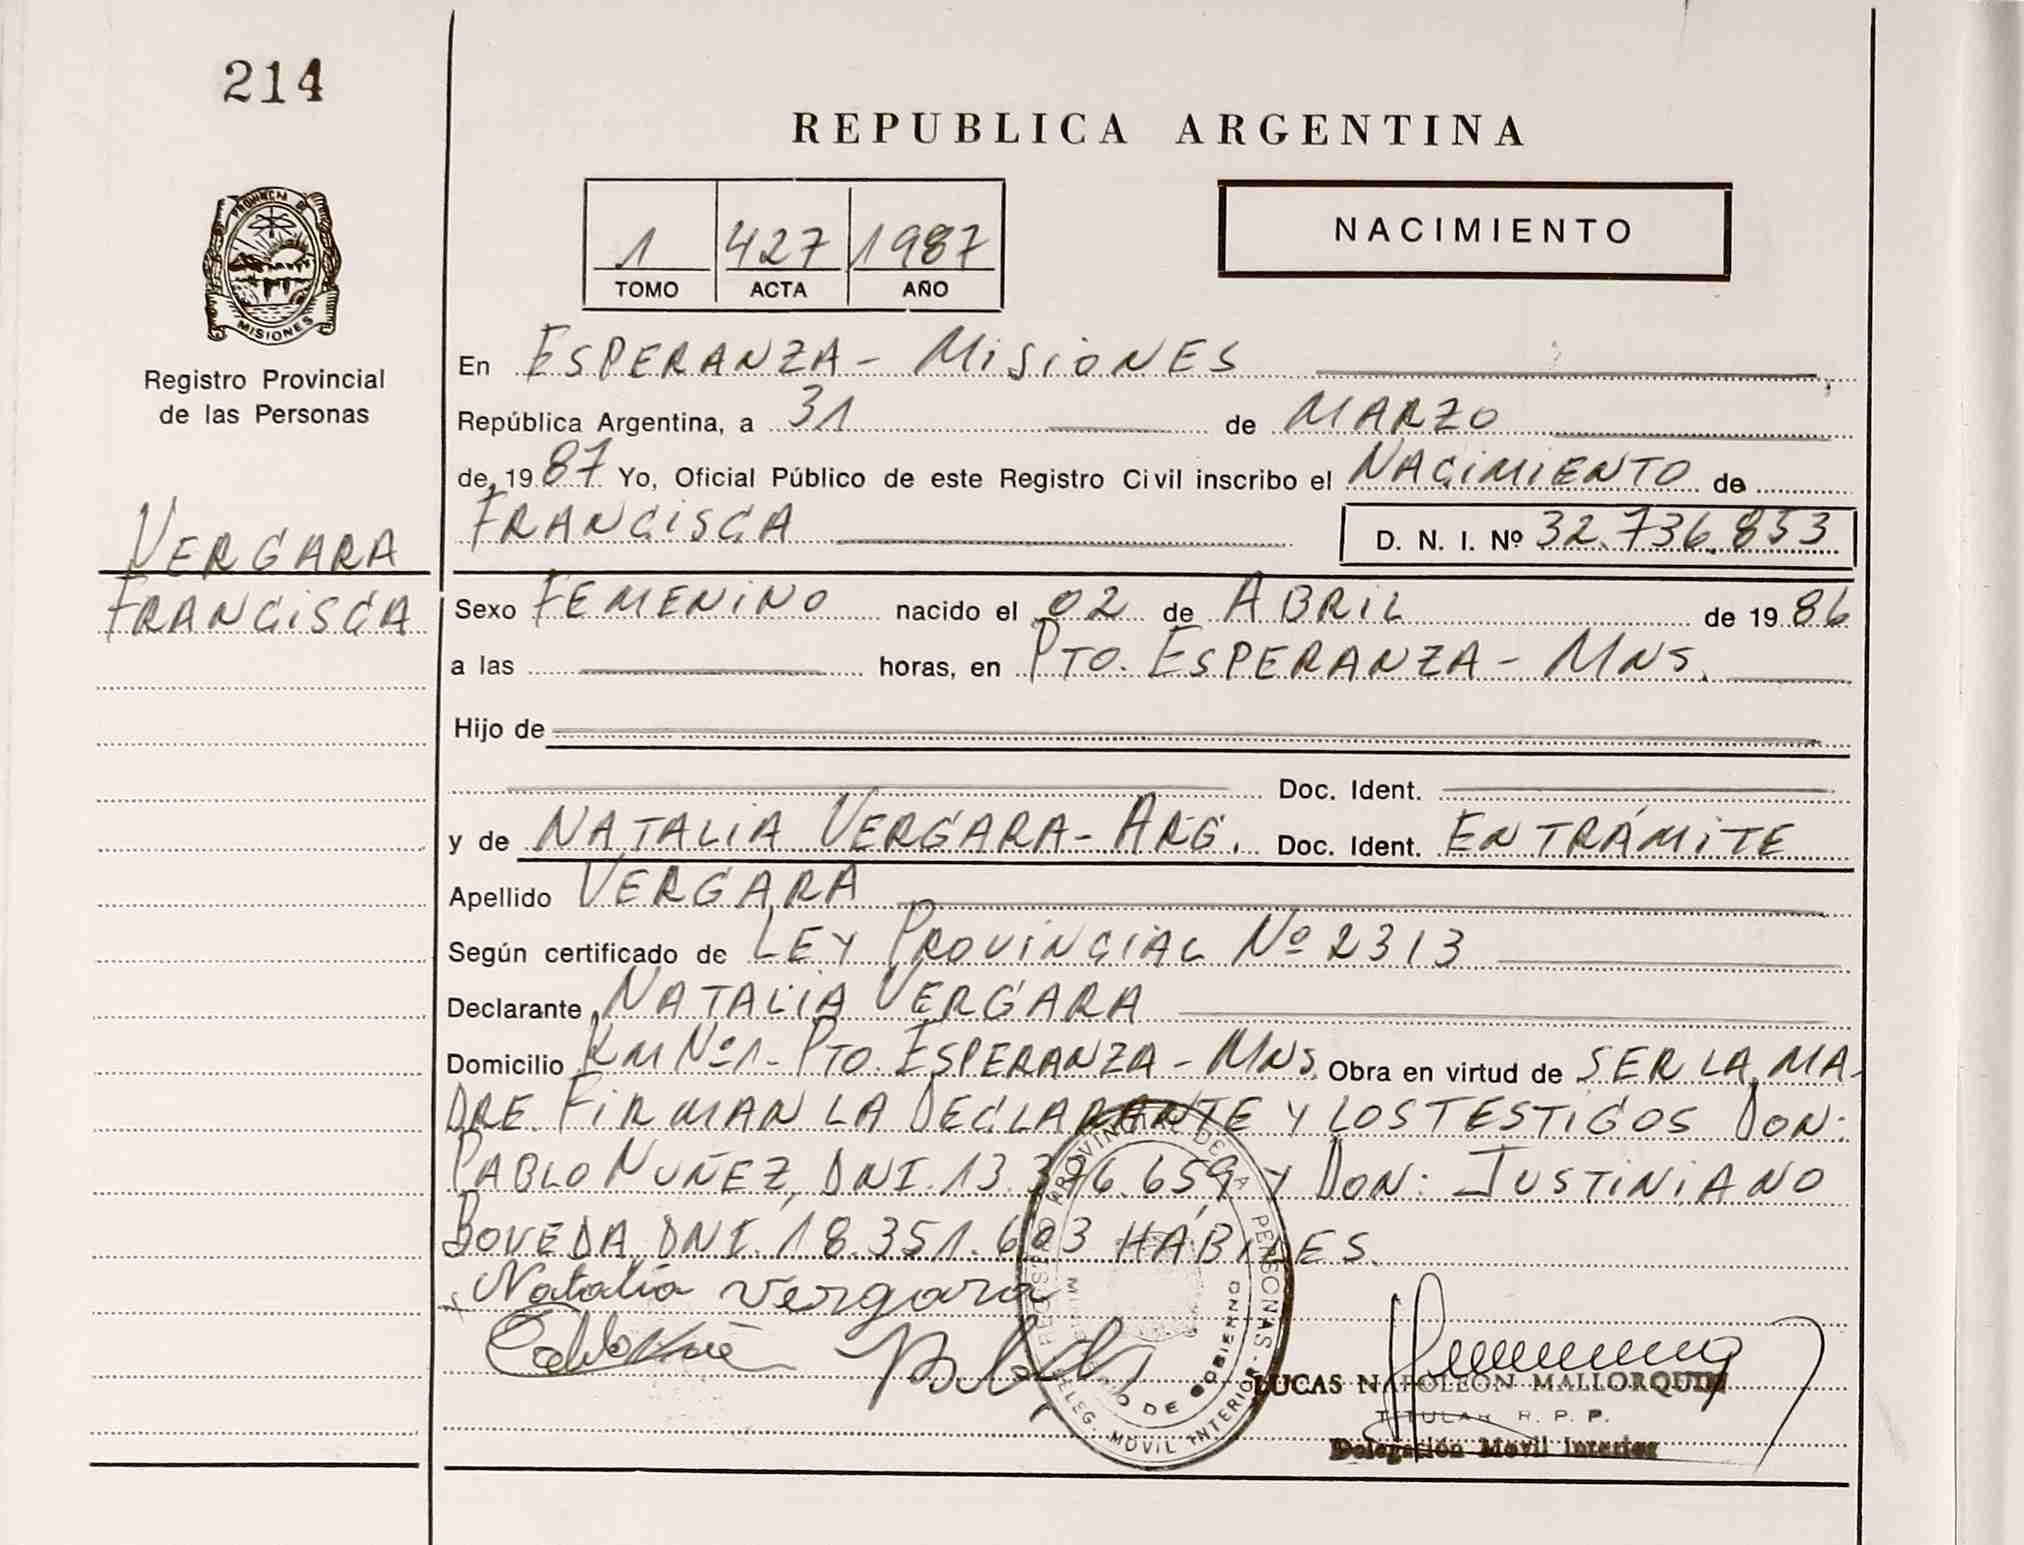 214
REPUBLICA ARGENTINA
1 427 1987
TOMO ACTA AÑO
NACIMIENTO
PROVINCIA DE
MISIONES
Registro Provincial
de las Personas
VERGARA
FRANCISCA
En ESPERANZA - MISIONES
República Argentina, a 31 de MARZO
de 1987 Yo, Oficial Público de este Registro Civil inscribo el NACIMIENTO de
FRANCISCA D. N. I. Nº 32.736.853
Sexo FEMENINO nacido el 02 de ABRIL de 1986
a las horas, en PTO. ESPERANZA - MNS.
Hijo de
Doc. Ident.
y de NATALIA VERGARA - ARG. Doc. Ident. EN TRÁMITE
Apellido VERGARA
Según certificado de LEY PROVINCIAL Nº 2313
Declarante NATALIA VERGARA
Domicilio KM Nº 1 - PTO. ESPERANZA - MNS. Obra en virtud de SER LA MA-
DRE. FIRMAN LA DECLARANTE Y LOS TESTIGOS DON:
PABLO NUÑEZ, DNI. 13.376.659 Y DON: JUSTINIANO
BOVEDA, DNI. 18.351.603 HÁBILES.
Natalia Vergara
REGISTRO PROVINCIAL DE LA PERSONAS -
DE GOBIERNO
DELEG. MOVIL INTERIOR
LUCAS NAPOLEON MALLORQUIN
TITULAR R. P. P.
Delegación Movil Interior